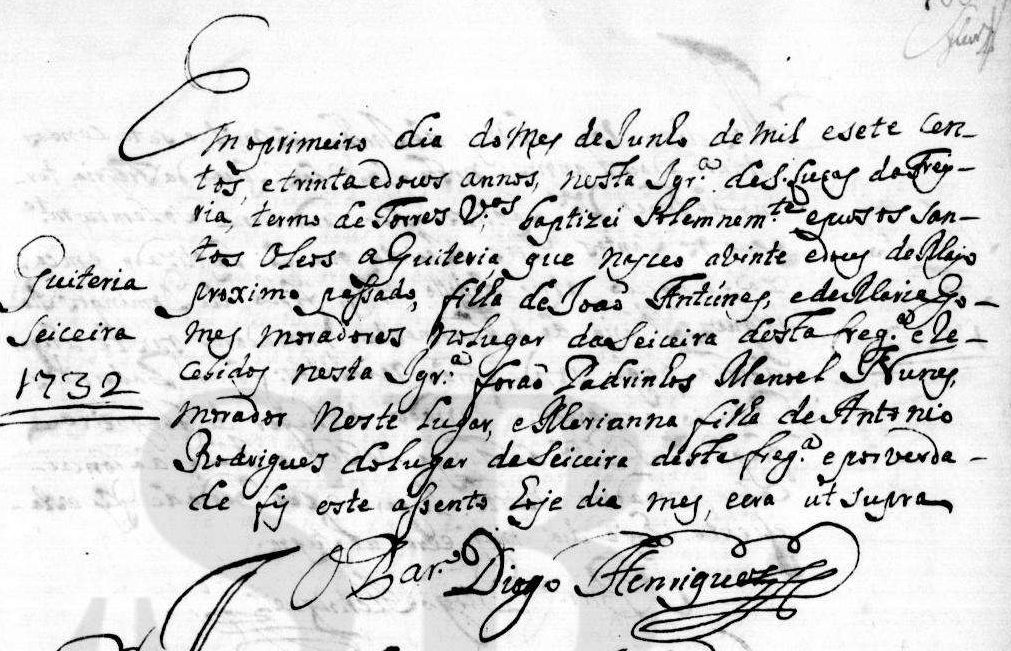 Em o primeiro dia do mes de Junho de mil e sete cen-
tos, e trinta e dous annos, nesta Igr.ª de S. Lucas da Frey-
ria, termo de Torres V.as baptizei solemnem.te e pus os san-
tos Oleos a Guiteria, que nasceo a vinte e dous de Mayo
Guiteria
proximo passado, filha de João Antúnes, e de Maria Go-
Seiceira
mes moradores no lugar da Seiceira desta freg.ª e re-
1732
cebidos nesta Igr.ª forão Padrinhos Manoel Nunes,
morador neste lugar, e Marianna filha de Antonio
Rodrigues do lugar da Seiceira desta freg.ª e por verda-
de fiz este assento hoje dia mes, e era ut supra
O Bar.o Diogo Henriques